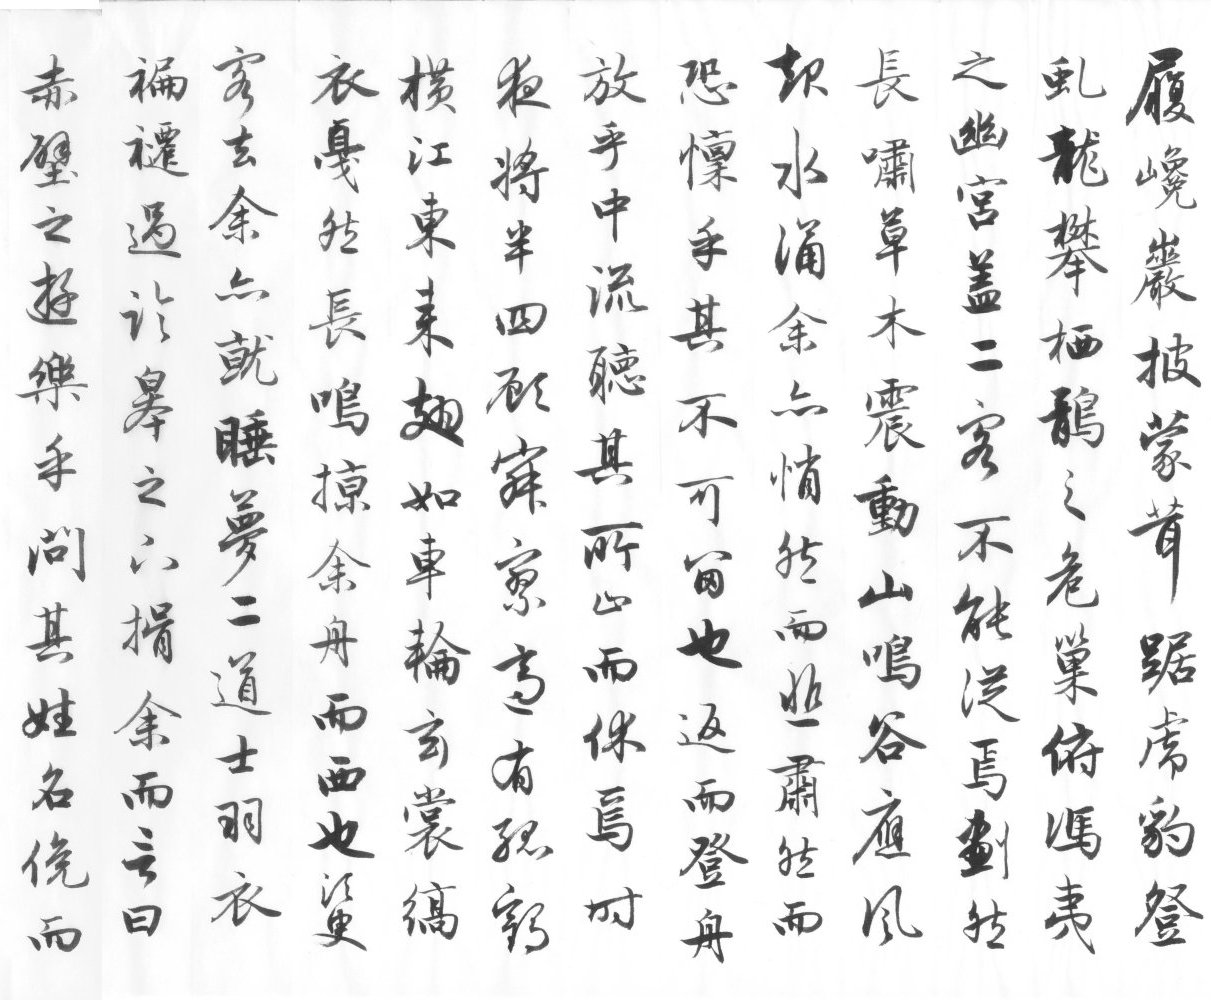 履巉巖披蒙茸踞虎豹登
虬龍攀栖鶻之危巢俯馮夷
之幽宮盖二客不能從焉劃然
長嘯草木震動山鳴谷應風
起水涌余亦悄然而悲肅然而
恐懍乎其不可留也返而登舟
放乎中流聽其所止而休焉时
夜將半四顧寂寥適有孤鶴
橫江東来翅如車輪玄裳縞
衣戛然長鳴掠余舟而西也須臾
客去余亦就睡夢二道士羽衣
褊褼過臨皋之下揖余而言曰
赤壁之遊樂乎問其姓名俛而